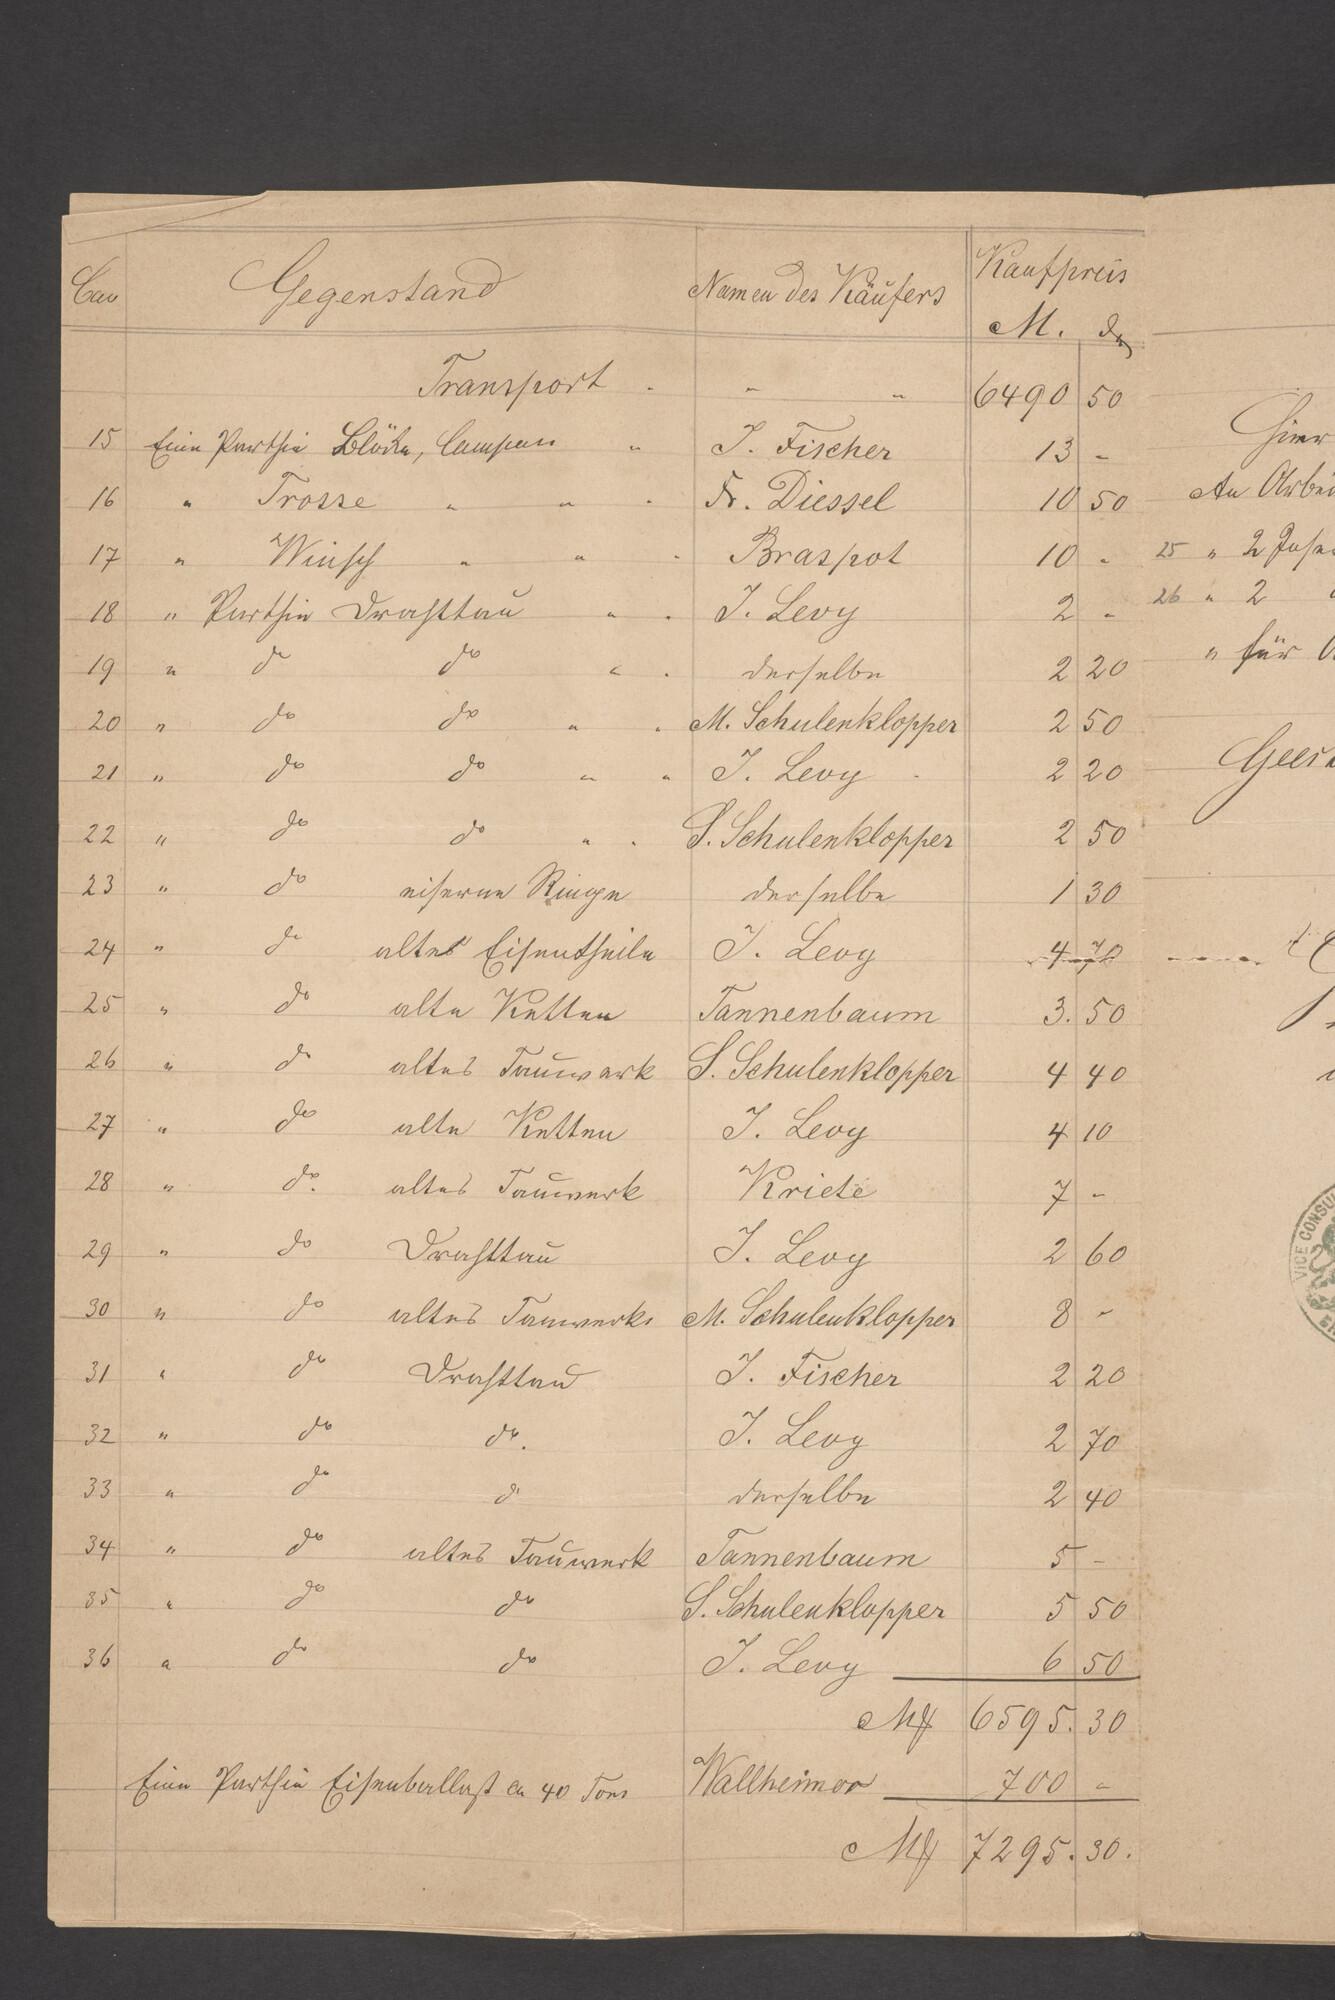 Cav Gegenstand Namen des Käufers Kaufpreis
M. ₰
Transport . " " 6490 50
15 Eine Parthie Blöcke, Lampen " J. Fischer 13 -
16 " Trosse " " . Fr. Diessel 10 50
17 " Winsch " " . Braspot 10 -
18 " Parthie Drahttau " . J. Levy 2 -
19 " do do " . derselbe 2 20
20 " do do " . M. Schulenklopper 2 50
21 " do do " " J. Levy 2 20
22 " do do " . S. Schulenklopper 2 50
23 " do eiserne Ringe derselbe 1 30
24 " do altes Eisentheile J. Levy 4 70
25 " do alte Ketten Tannenbaum 3. 50
26 " do altes Tauwerk S. Schulenklopper 4 40
27 " do alte Ketten J. Levy 4 10
28 " do. altes Tauwerk Kriete 7 -
29 " do Drahttau J. Levy 2 60
30 " do altes Tauwerk M. Schulenklopper 8 -
31 " do Drahttau J. Fischer 2 20
32 " do do. J. Levy 2 70
33 " do do derselbe 2 40
34 " do altes Tauwerk Tannenbaum 5 -
35 " do do S. Schulenklopper 5 50
36 " do do J. Levy 6 50
M 6595. 30
Eine Parthie Eisenballast ca 40 Tons Wallheimer 700 -
M 7295. 30.
Hier
An Arbei
25 " 2
26 " 2
" für
Geest
VICE CONSU